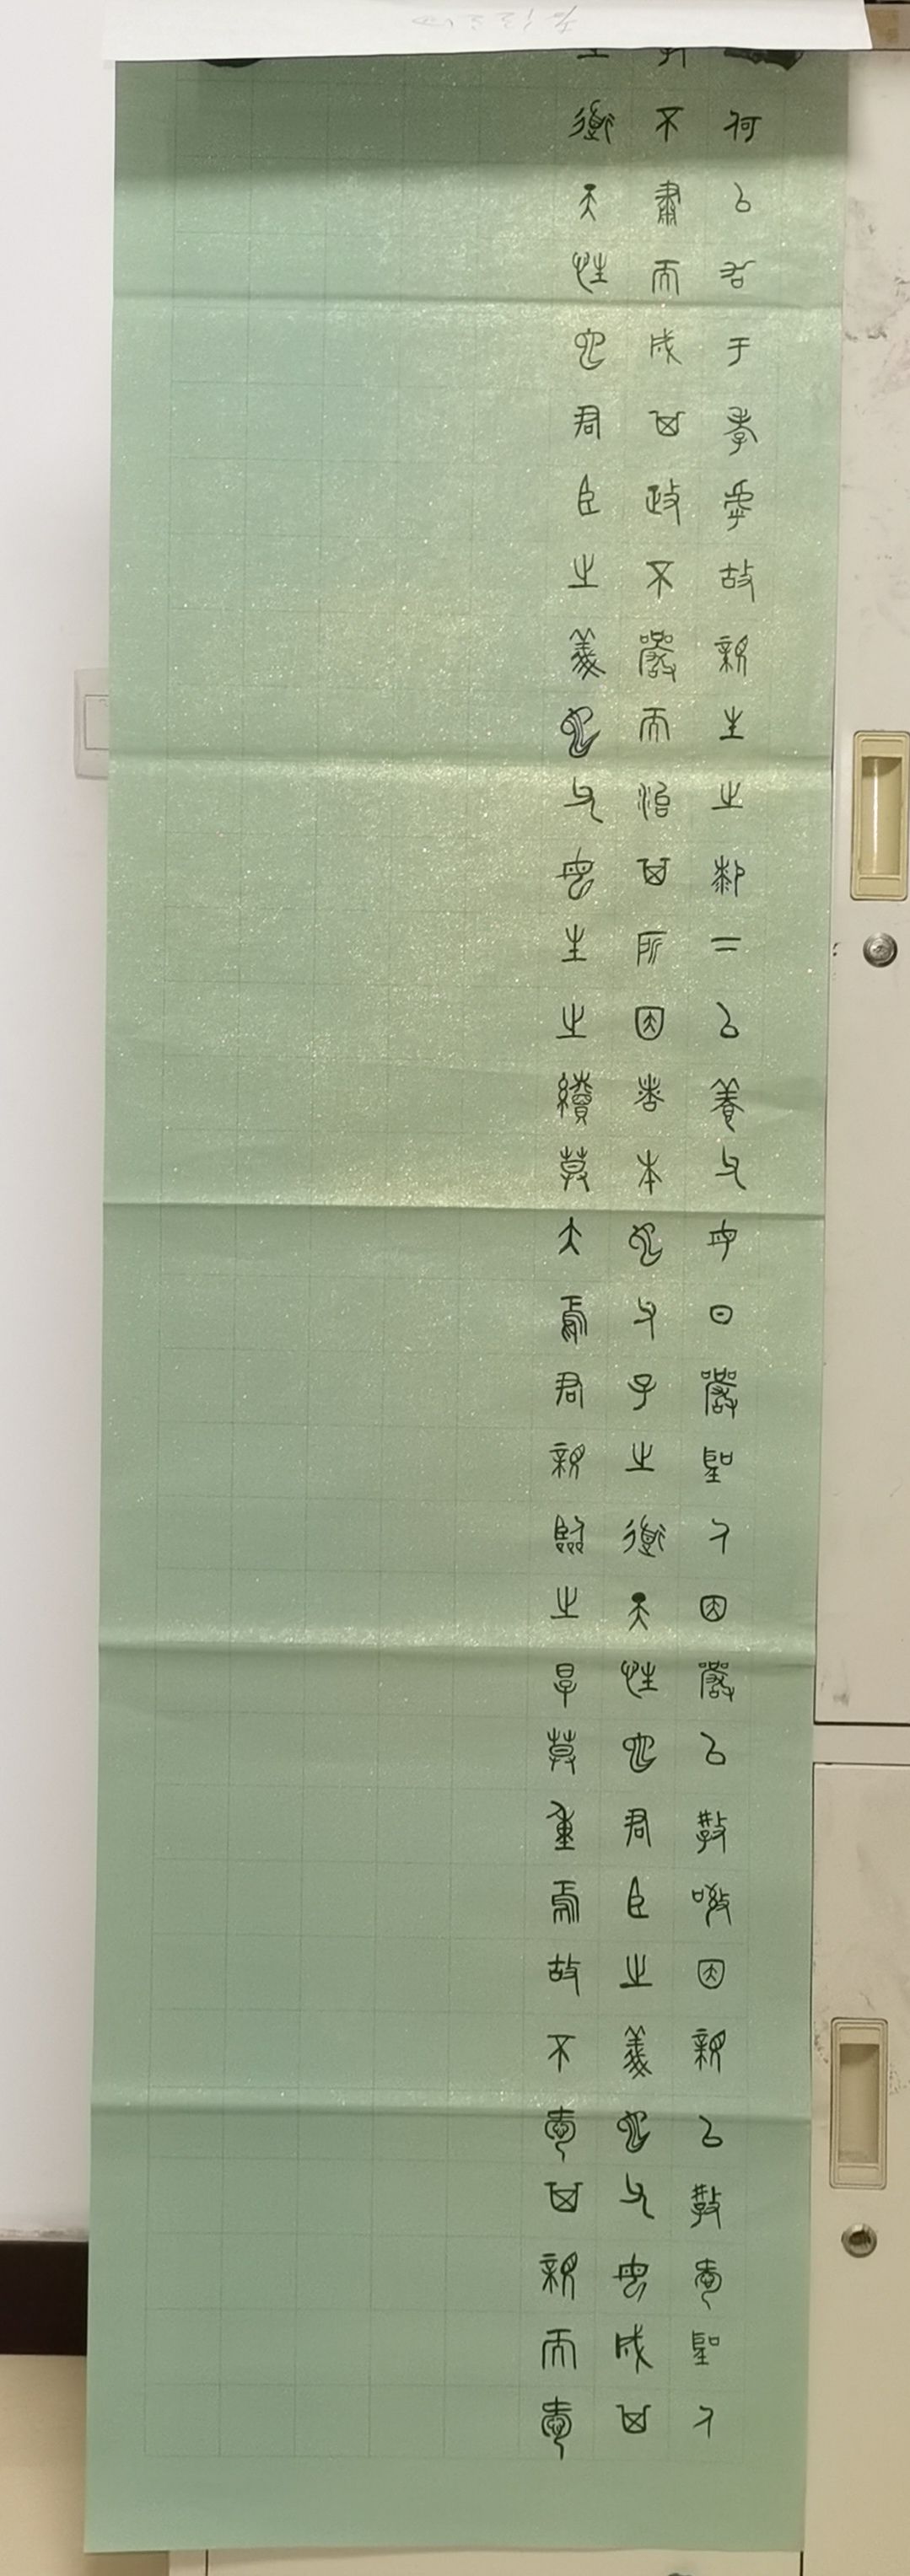 何以加于孝乎故親生之膝下以養父母日嚴聖人因嚴以教敬因親以教愛聖人
不肅而成其政不嚴而治其所因者本也父子之道天性也君臣之義也父母成其
道天性也君臣之義也父母生之續莫大焉君親臨之厚莫重焉故不愛其親而愛